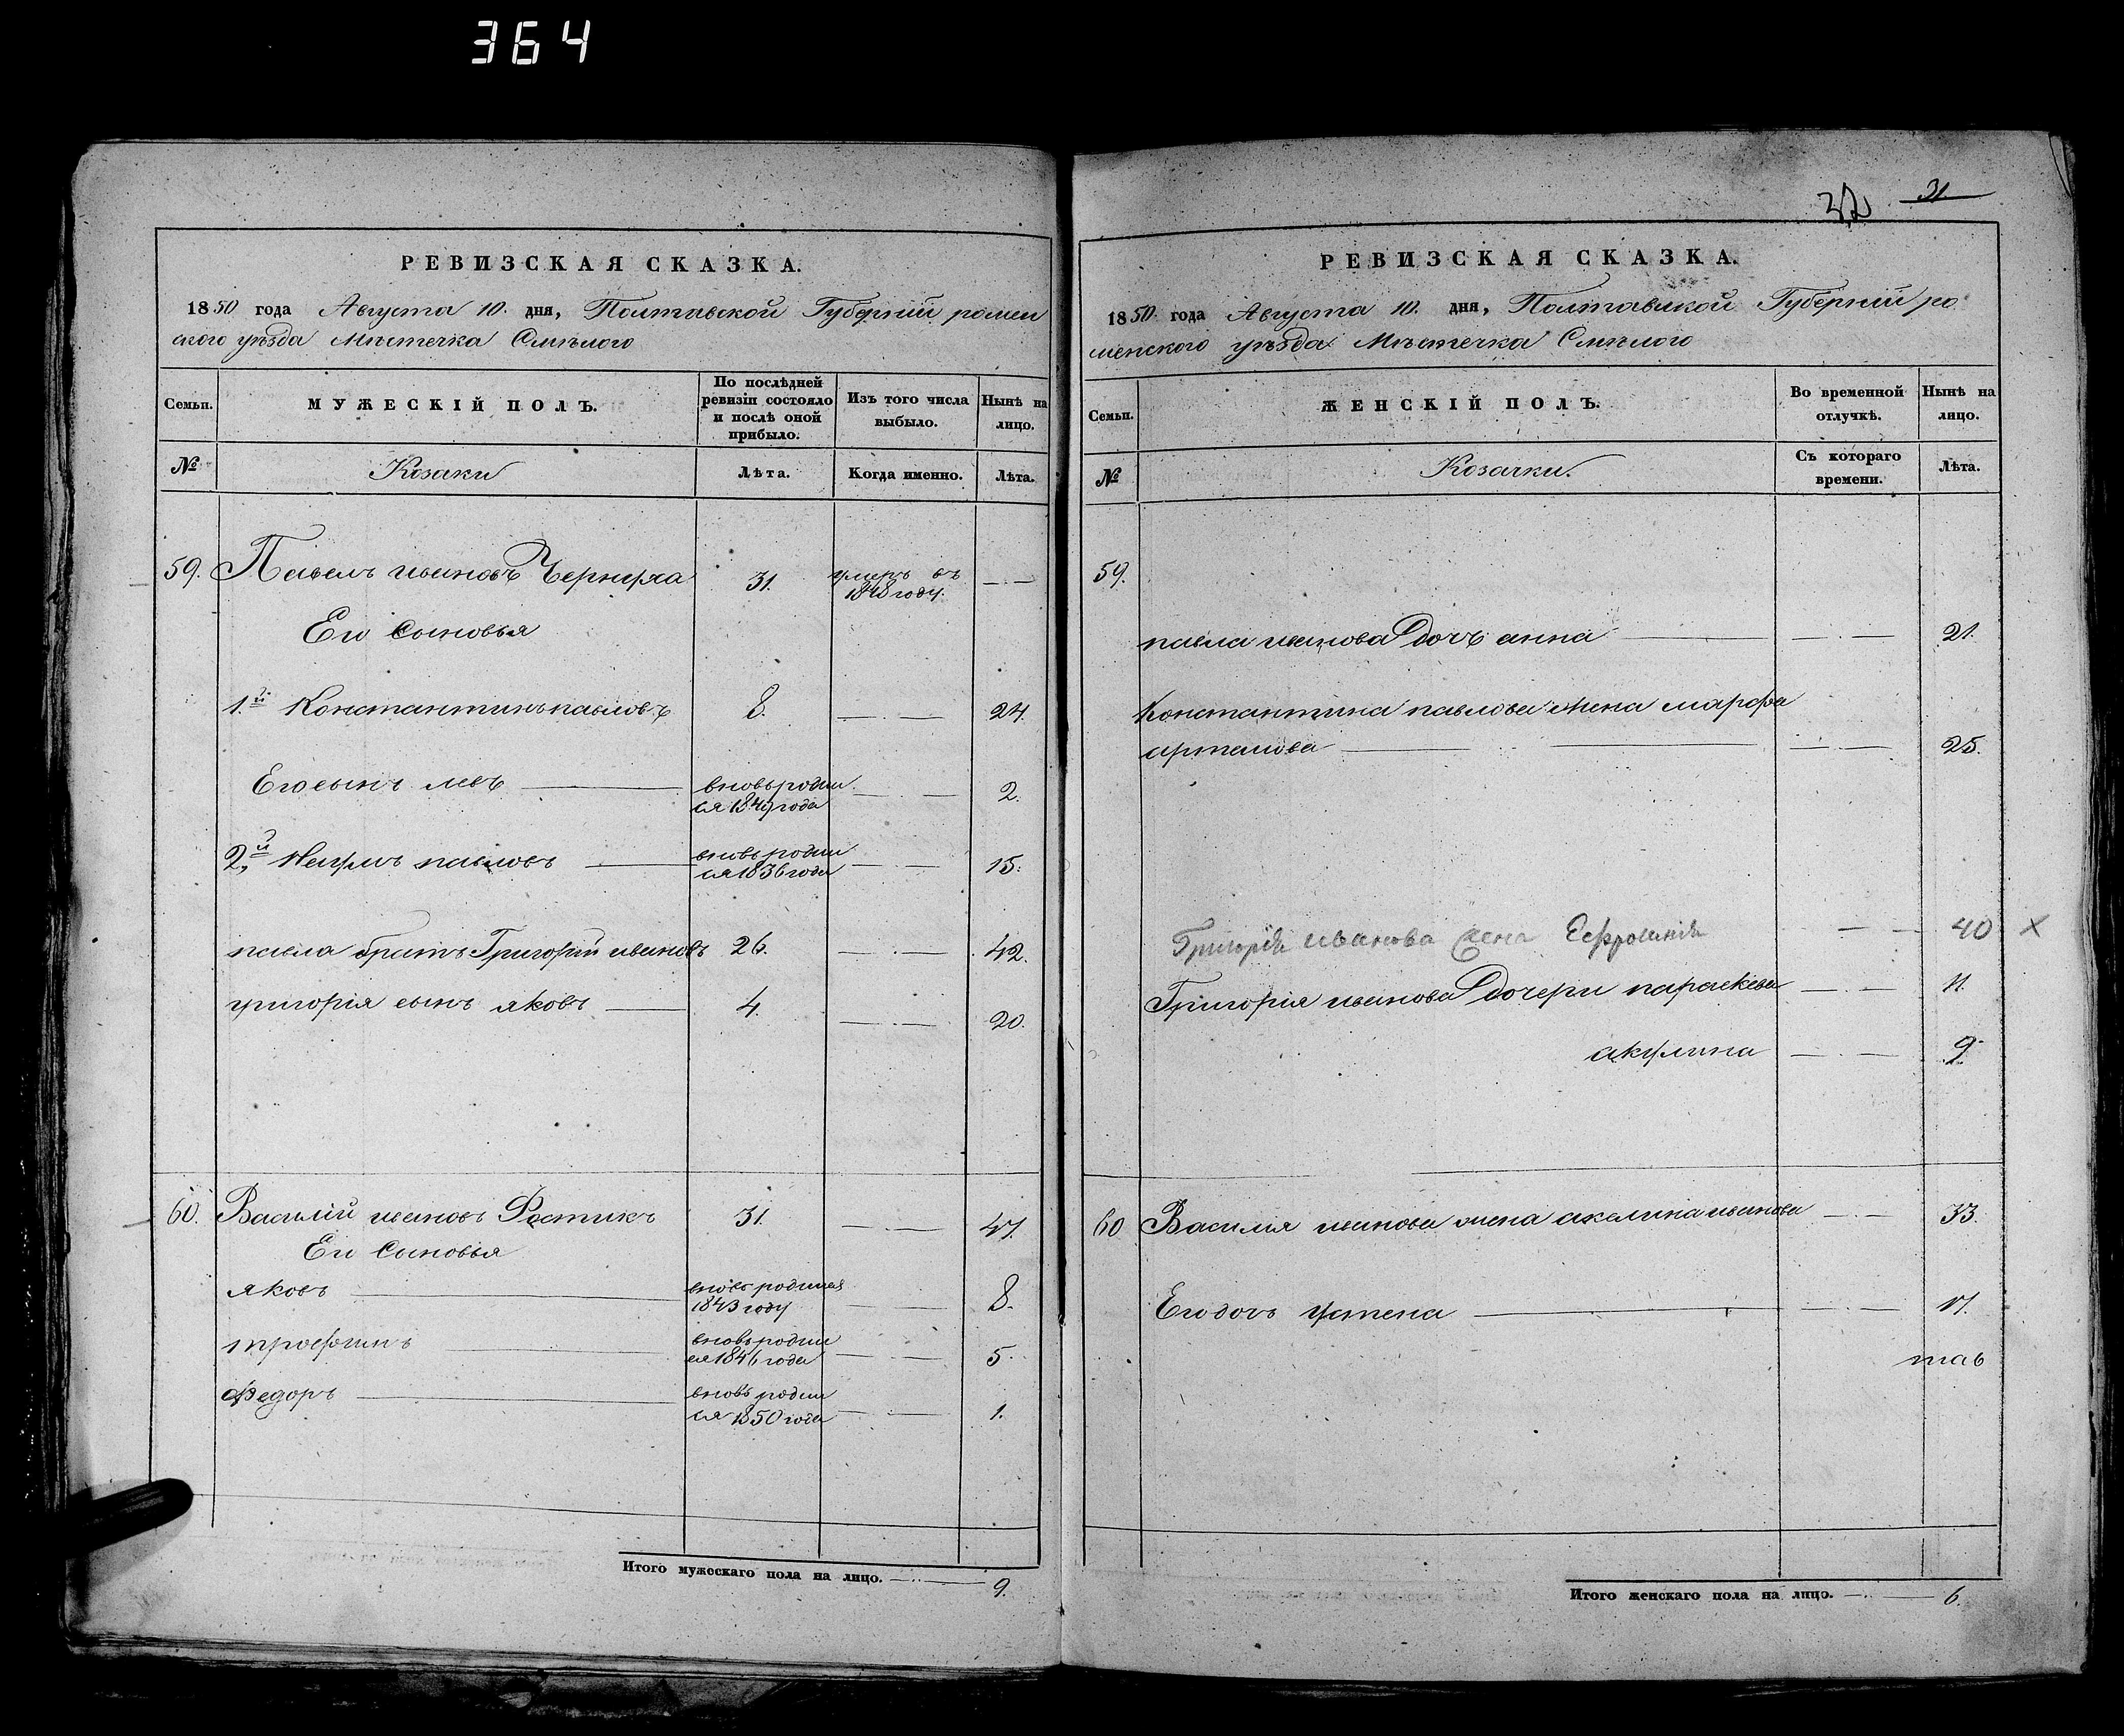 364
РЕВИЗСКАЯ СКАЗКА.
1850 года Августа 10. дня, Полтавской Губерніи ромен
ского уѣзда Мѣстечка Смѣлого
Семьи.
МУЖЕСКІЙ ПОЛЪ.
По послѣдней
ревизіи состояло
и послѣ оной
прибыло.
Изъ того числа
выбыло.
Нынѣ на
лицо.
№
Козаки
Лѣта.
Когда именно.
Лѣта.
59. Павелъ ивановъ 31. умеръ въ
1848 году. — —
Его Сыновья
1.й Константинъ павловъ 8. — — 24.
Его сынъ левъ вновь родил
ся 1849 года — — 2.
2,й Наумъ павловъ вновь родил
ся 1836 года — — 15.
павла братъ Григорій ивановъ 26. — — 42.
григорія сынъ яковъ 4. — — 20.
60. Василій ивановъ Фостикъ 31. — — 47.
Его Сыновья
яковъ вновь родился
1843 году — — 8.
трофимъ вновь родил
ся 1846 года — — 5.
Федоръ вновь родил
ся 1850 года — — 1.
Итого мужескаго пола на лицо. — 9.
32 31.
РЕВИЗСКАЯ СКАЗКА.
1850 года Августа 10. дня, Полтавской Губерніи ро
менского уѣзда Мѣстечка Смѣлого
Семьи.
ЖЕНСКІЙ ПОЛЪ.
Во временной
отлучкѣ.
Нынѣ на
лицо.
№
Козачки.
Съ котораго
времени.
Лѣта.
59.
павла иванова дочь анна — — 21.
Константина павлова жена марфа
артемова — — 25.
Григорія иванова жена Ефросинія — — 40 х
Григорія иванова дочери параскева — — 11.
акулина — — 9.
60 Василия иванова жена акелина иванова — — 33.
Его дочь устена — — 17.
Итого женскаго пола на лицо. — 6.